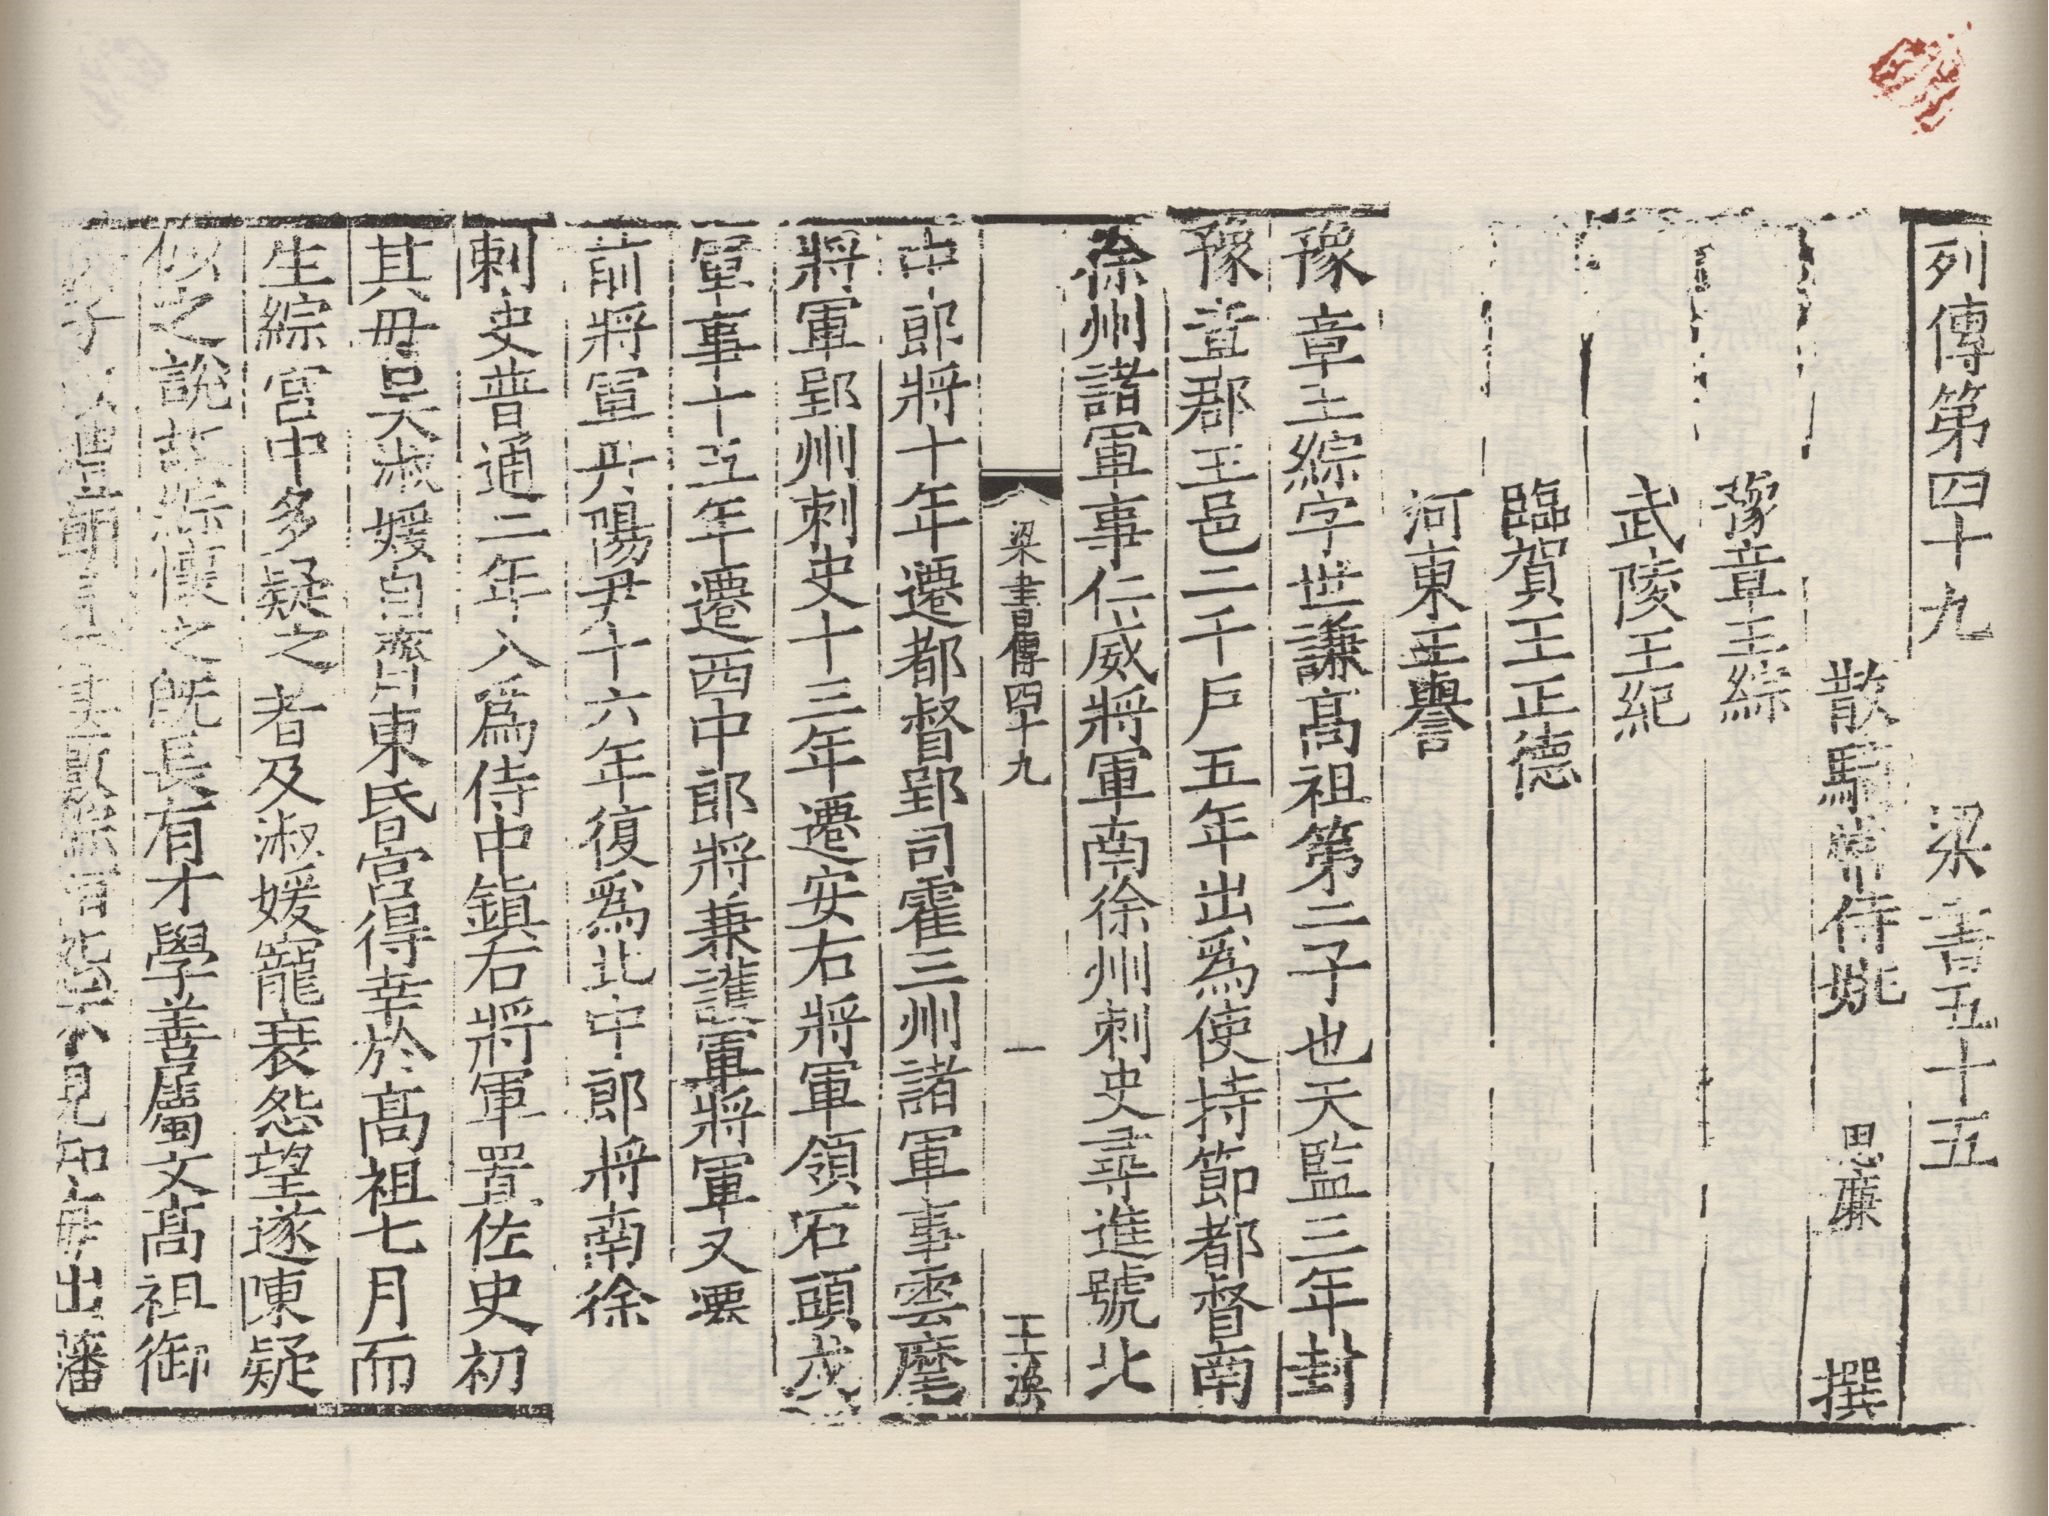 列傳第四十九　　梁書五十五
散騎常侍姚　思廉　撰
豫章王綜
武陵王紀
臨賀王正德
河東王譽
豫章王綜字世謙高祖第二子也天監三年封
豫章郡王邑二千戶五年出爲使持節都督南
徐州諸軍事仁威將軍南徐州刺史尋進號北
梁書傳四十九　一　王渙
中郎將十年遷都督郢司霍三州諸軍事雲麾
將軍郢州刺史十三年遷安右將軍領石頭戍
軍事十五年遷西中郎將兼護軍將軍又遷
前將軍丹陽尹十六年復爲北中郎將南徐
刺史普通二年入爲侍中鎮右將軍置佐史初
其母吳淑媛自齊東昏宮得幸於高祖七月而
生綜宮中多疑之者及淑媛寵衰怨望遂陳疑
似之說故綜懷之旣長有才學善屬文高祖御
諸子以禮朝見不甚數綜恒怨不見知每出藩